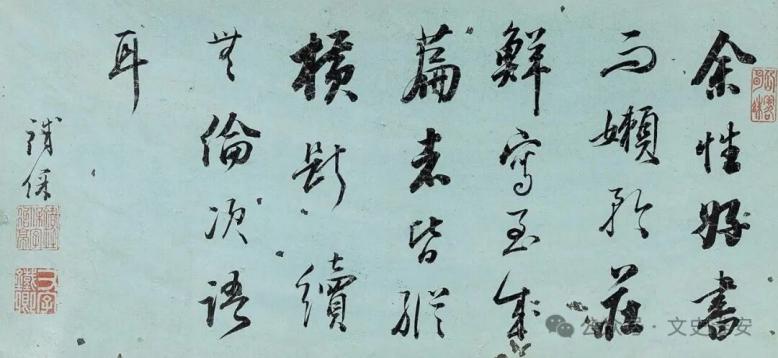 余性好書
而嬾於莊
鮮寫至成
篇者皆縱
橫斷續
無倫次語
耳
鐵保
公众号 · 文史安